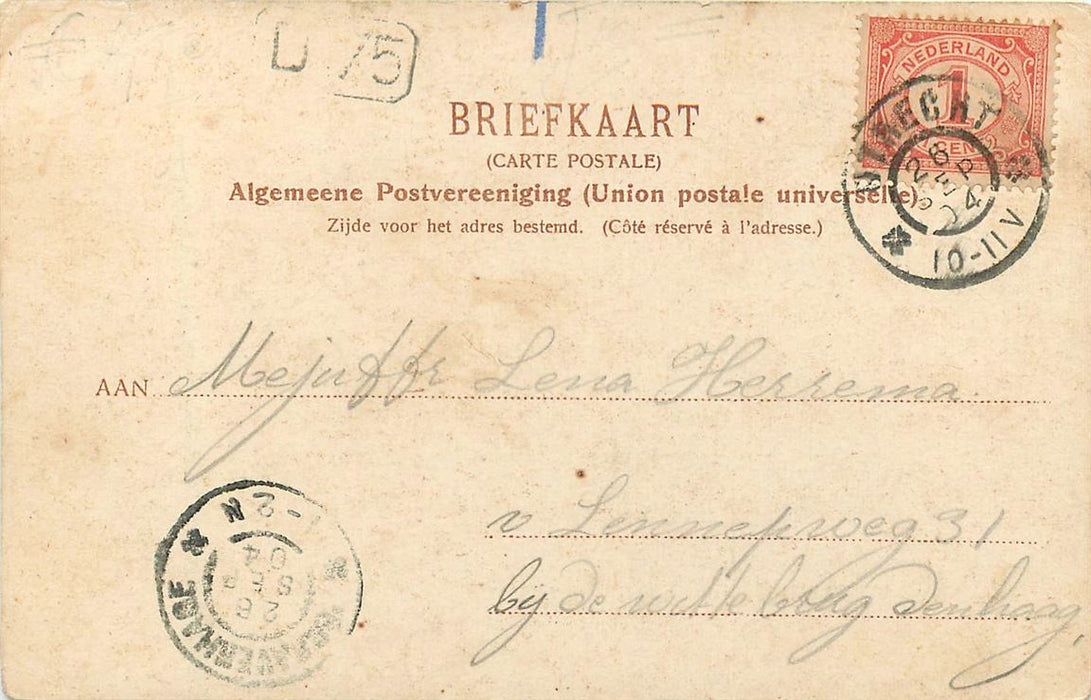 D 75
BRIEFKAART
(CARTE POSTALE)
Algemeene Postvereeniging (Union postale universelle)
Zijde voor het adres bestemd. (Côté réservé à l'adresse.)
NEDERLAND
1
CENT
UTRECHT
28
SEP
04
10-11 V
AAN Mejuffr Lena Herrema.
v Lennepweg 31
bij de witte brug den haag,
'S GRAVENHAGE
28
SEP
04
1-2 N